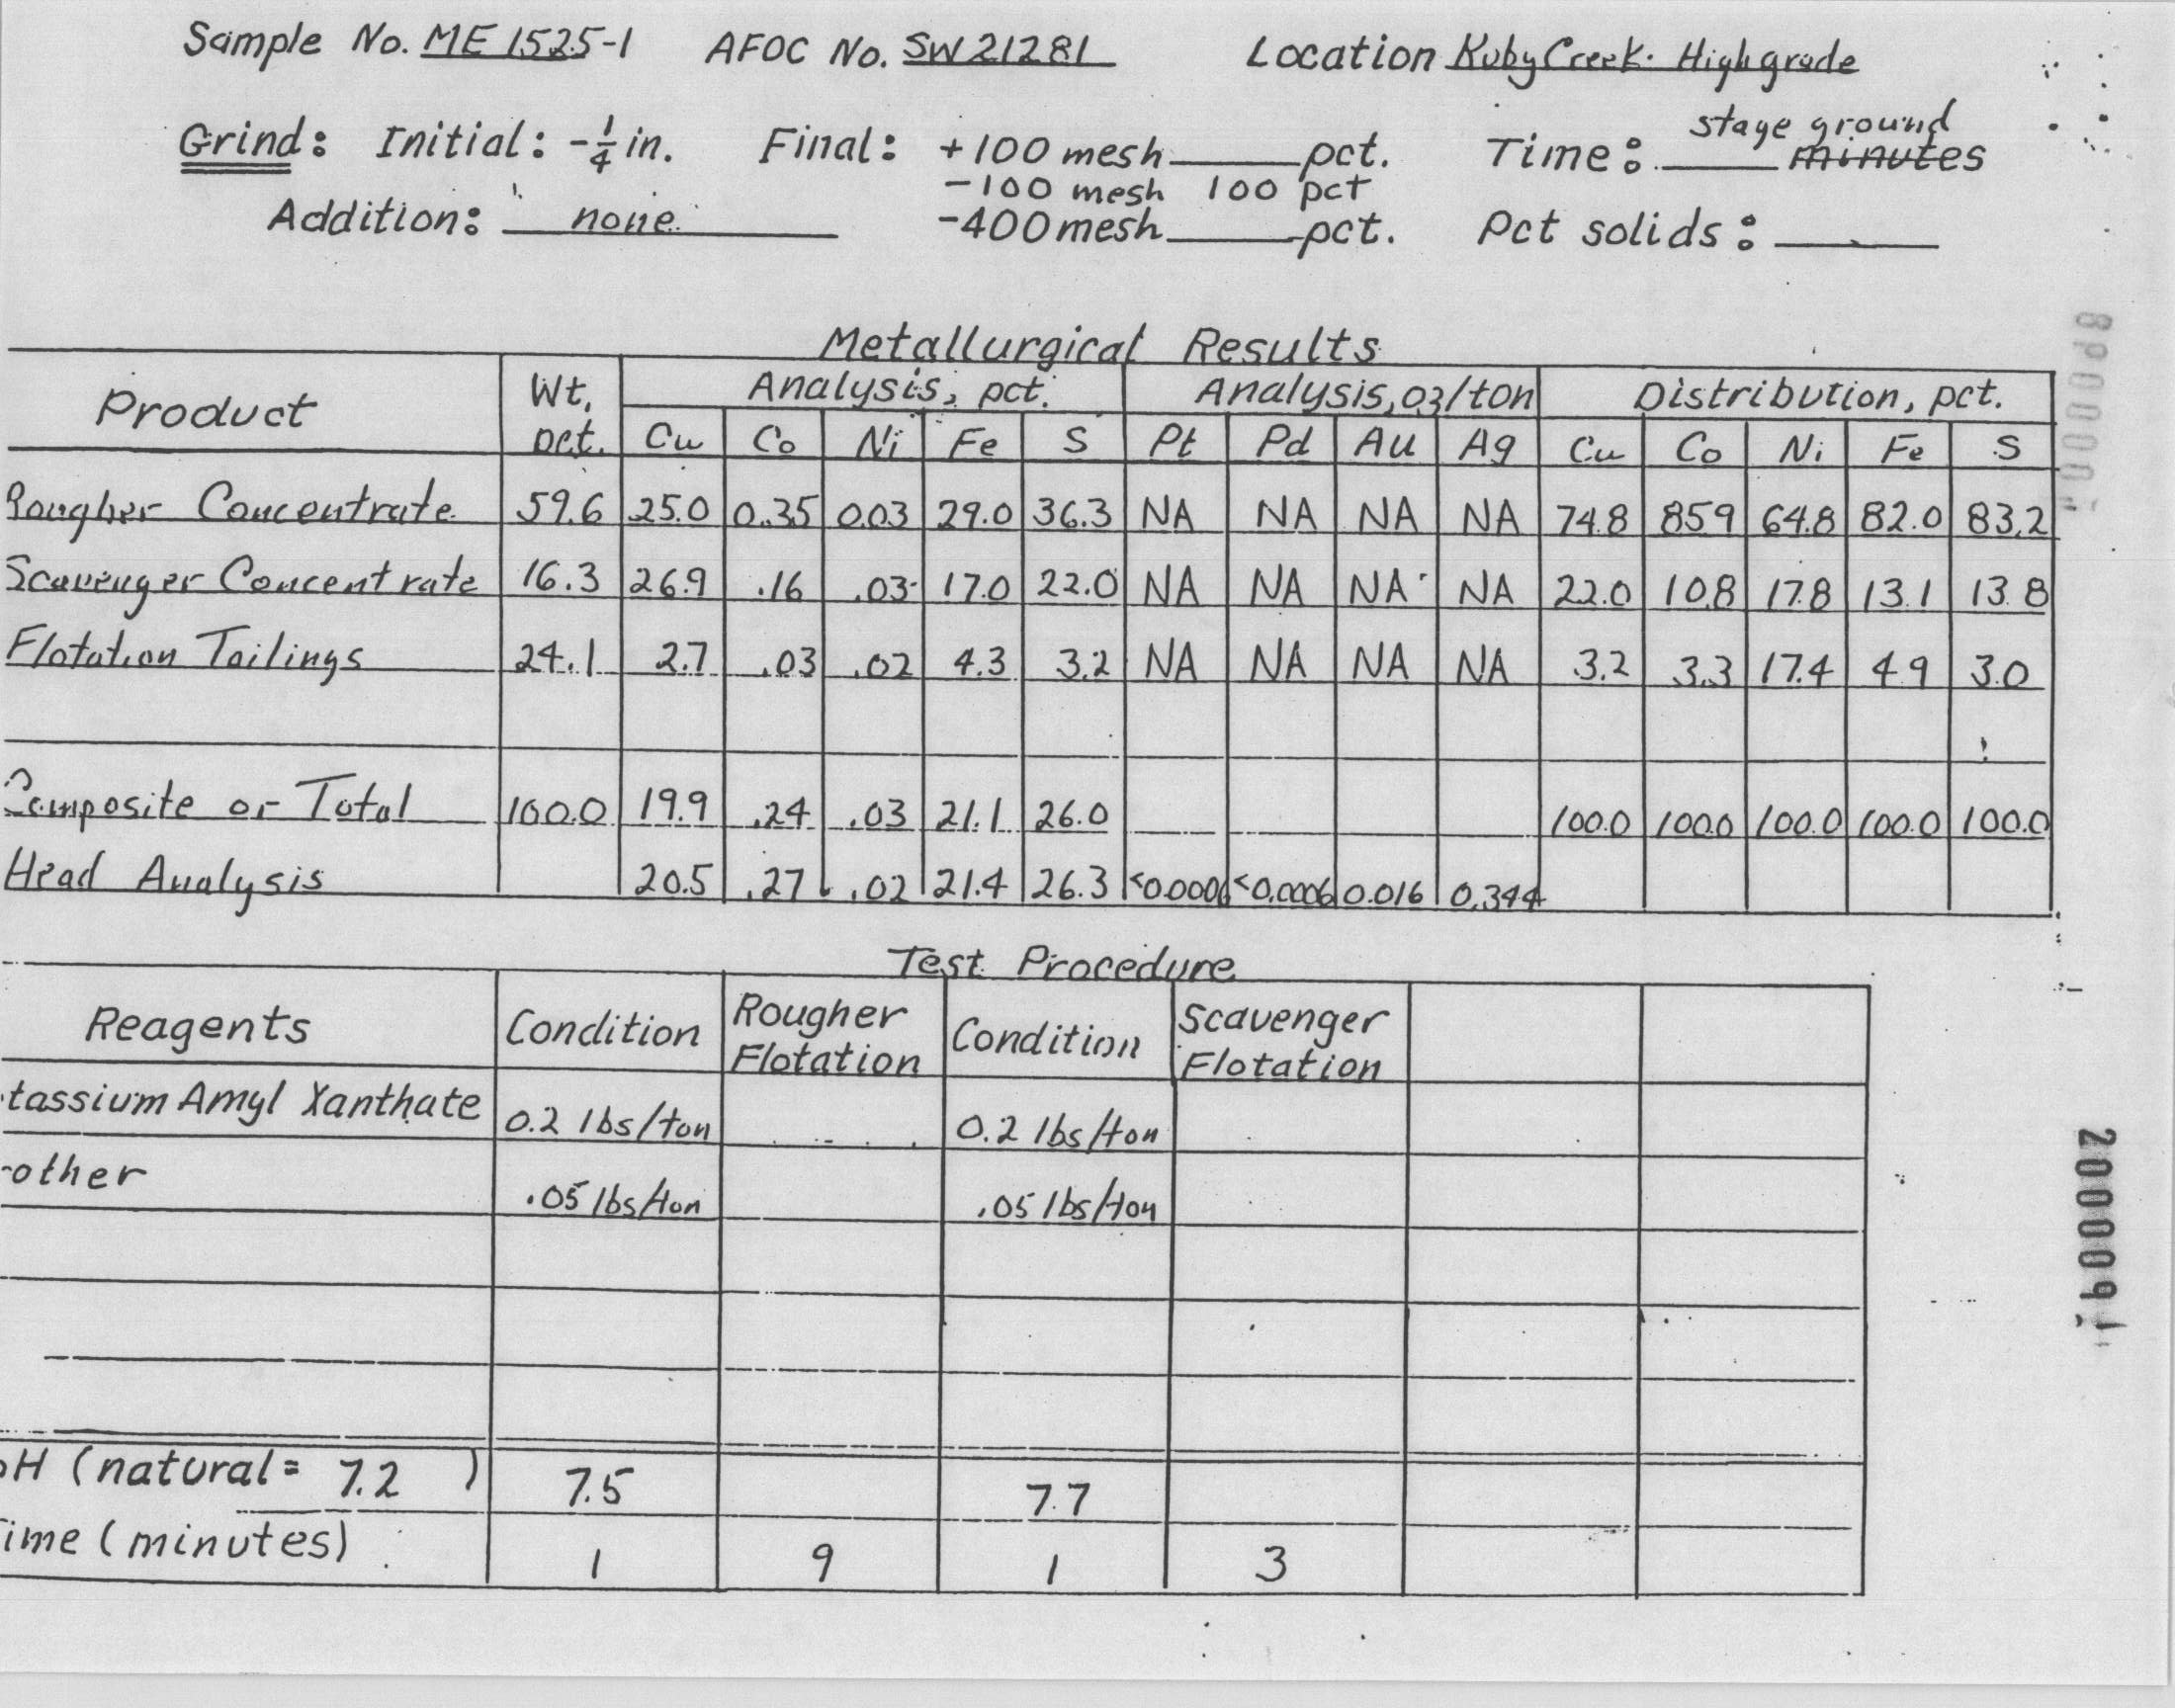 Sample No. ME 1525-1 AFOC No. SW21281 Location Ruby Creek. High grade
Grind: Initial: -1/4 in. Final: +100 mesh ____ pct. Time: ____ stage ground minutes
-100 mesh 100 pct
Addition: none -400 mesh ____ pct. Pct solids: ____
Metallurgical Results
Product Wt. pct. Analysis, pct. Analysis, oz/ton Distribution, pct.
Cu Co Ni Fe S Pt Pd Au Ag Cu Co Ni Fe S
Rougher Concentrate 59.6 25.0 0.35 0.03 29.0 36.3 NA NA NA NA 74.8 85.9 64.8 82.0 83.2
Scavenger Concentrate 16.3 26.9 .16 .03 17.0 22.0 NA NA NA NA 22.0 10.8 17.8 13.1 13.8
Flotation Tailings 24.1 2.7 .03 .02 4.3 3.2 NA NA NA NA 3.2 3.3 17.4 4.9 3.0
Composite or Total 100.0 19.9 .24 .03 21.1 26.0 100.0 100.0 100.0 100.0 100.0
Head Analysis 20.5 .27 .02 21.4 26.3 <0.0006 <0.0006 0.016 0.344
Test Procedure
Reagents Condition Rougher Flotation Condition Scavenger Flotation
tassium Amyl Xanthate 0.2 lbs/ton 0.2 lbs/ton
rother .05 lbs/ton .05 lbs/ton
pH (natural= 7.2 ) 7.5 7.7
Time (minutes) 1 9 1 3